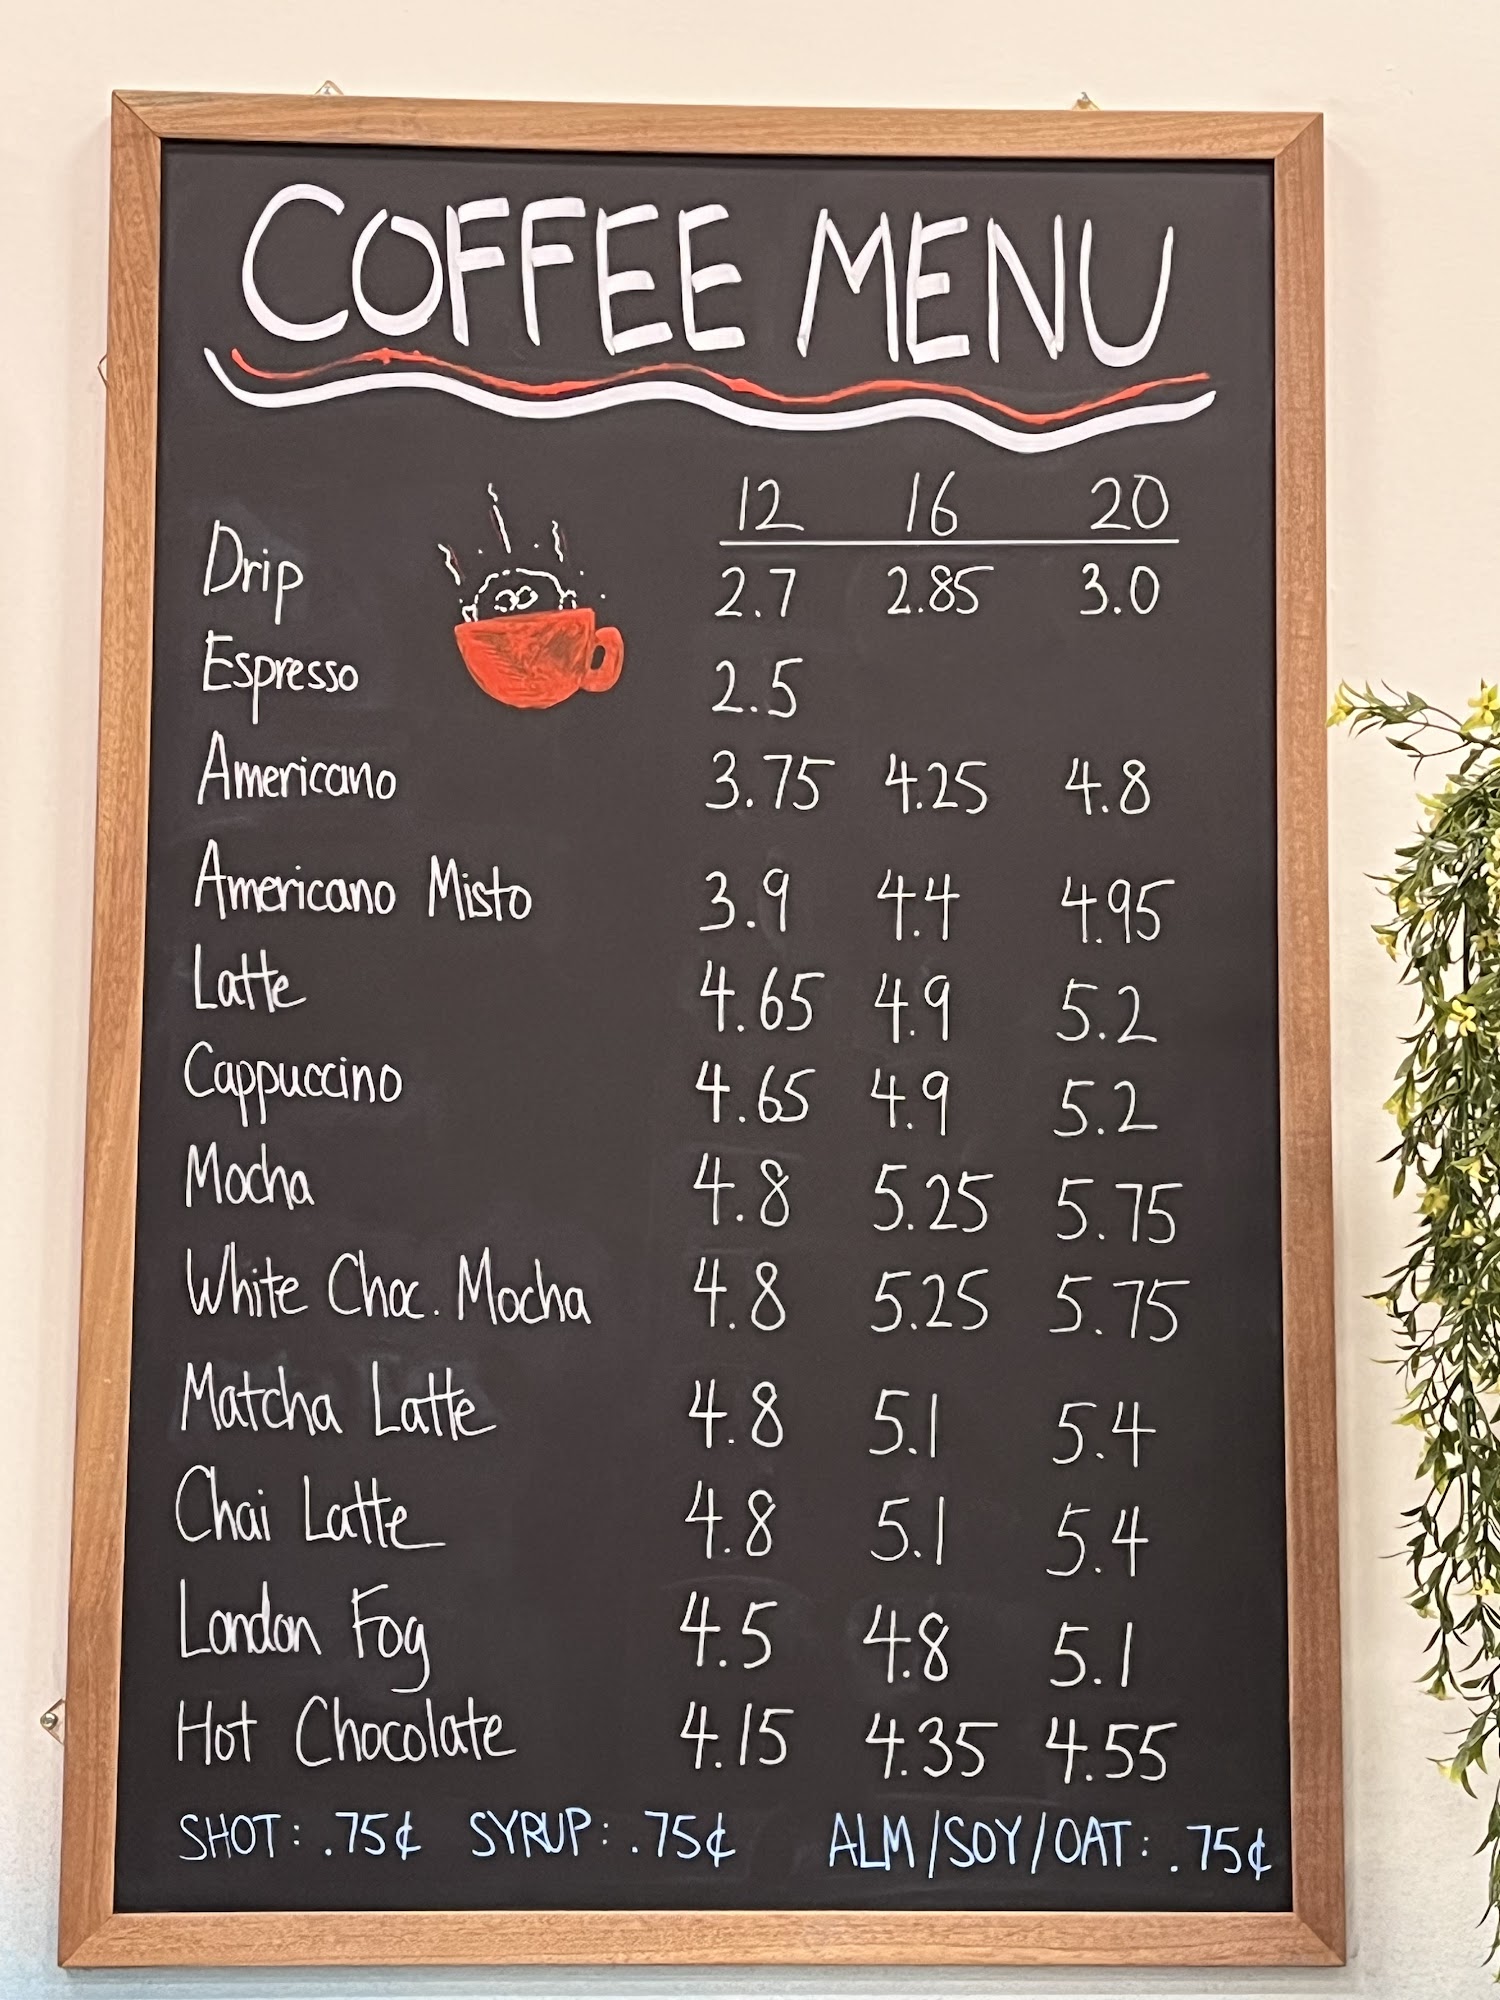 COFFEE MENU
12 16 20
Drip 2.7 2.85 3.0
Espresso 2.5
Americano 3.75 4.25 4.8
Americano Misto 3.9 4.4 4.95
Latte 4.65 4.9 5.2
Cappuccino 4.65 4.9 5.2
Mocha 4.8 5.25 5.75
White Choc. Mocha 4.8 5.25 5.75
Matcha Latte 4.8 5.1 5.4
Chai Latte 4.8 5.1 5.4
London Fog 4.5 4.8 5.1
Hot Chocolate 4.15 4.35 4.55
SHOT: .75¢ SYRUP: .75¢ ALM/SOY/OAT: .75¢